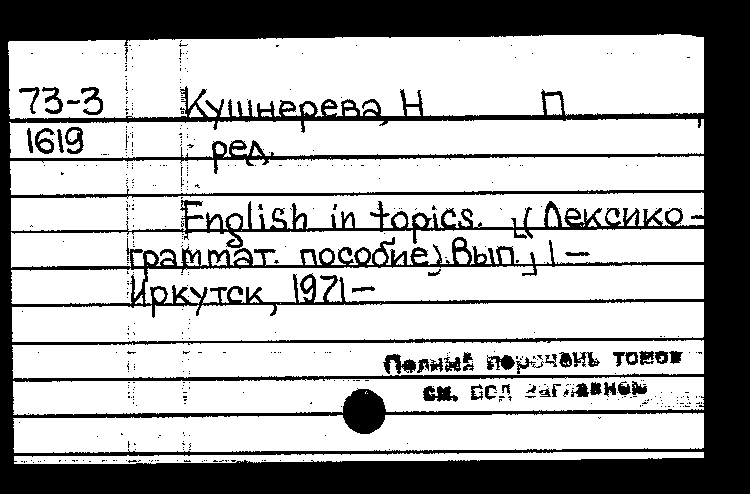 73-3 Кушнерева, Н П
1619 ред.
English in topics. [(Лексико-
граммат. пособие). Вып.] 1 —
Иркутск, 1971—
Полный перечень томов
см. под заглавием